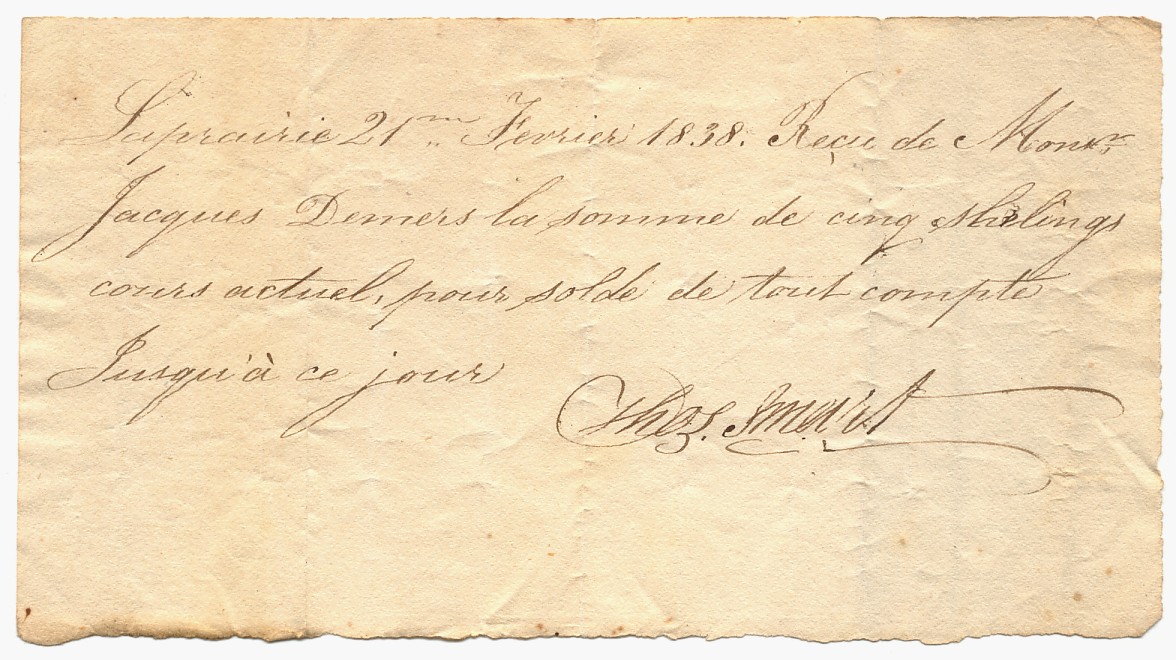 Laprairie 21me Fevrier 1838. Reçu de Monsr
Jacques Demers la somme de cinq shelings
cours actuel, pour solde de tout compte
Jusqu'à ce jour
Thos. Smart